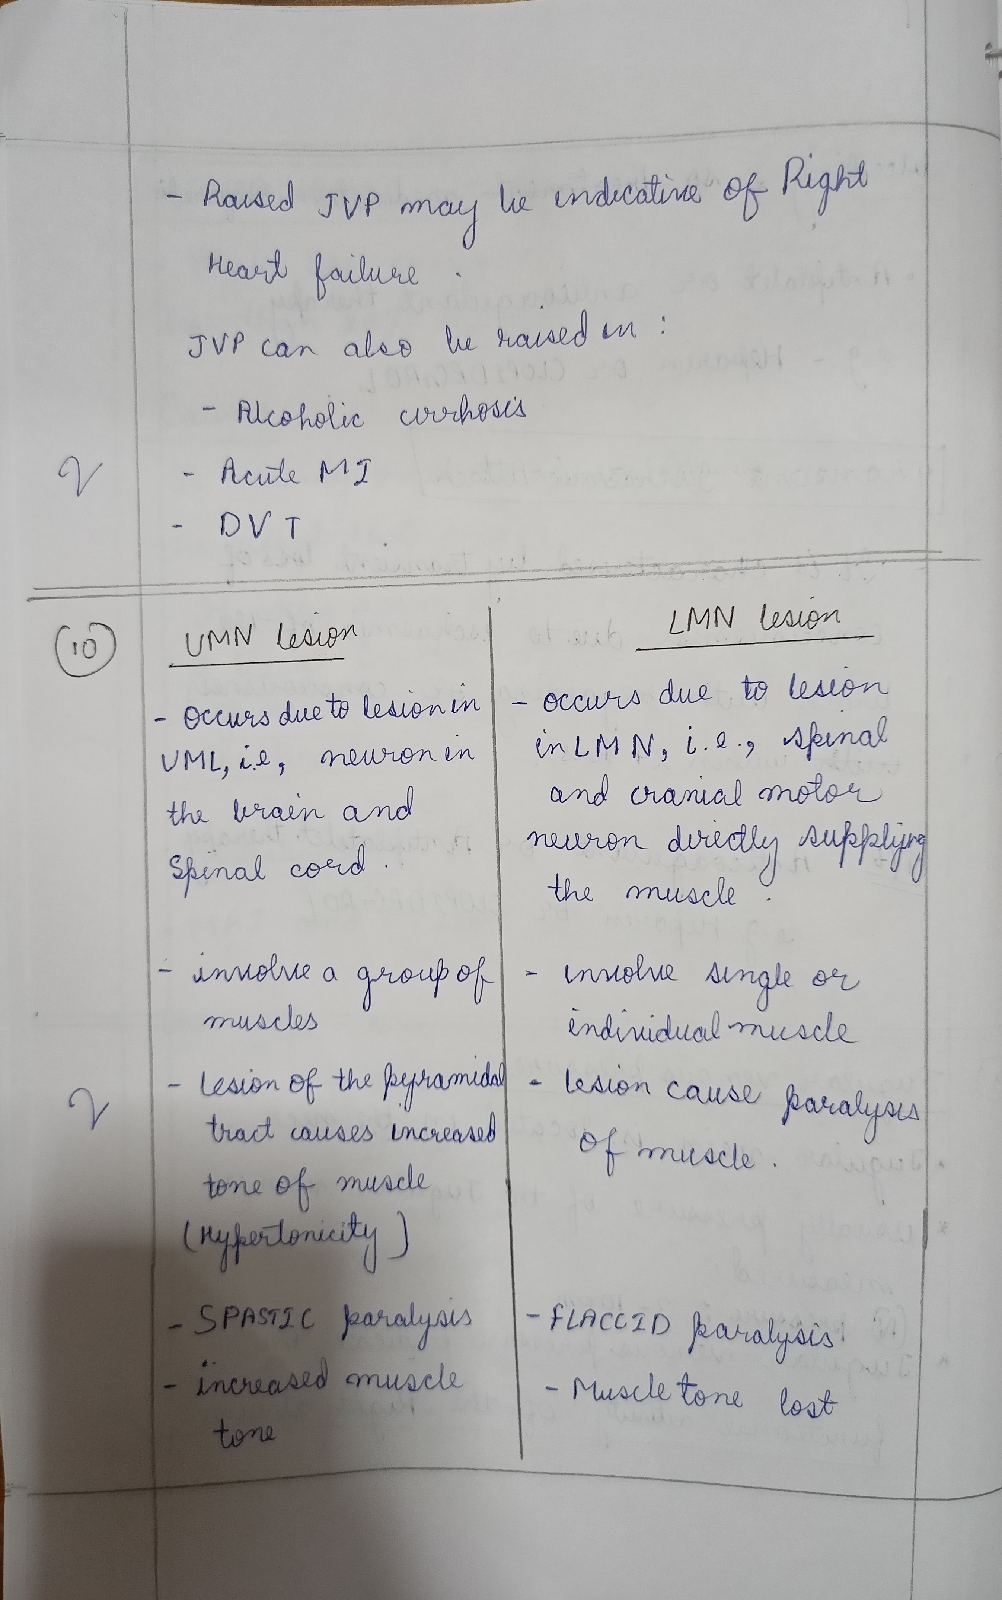 - Raised JVP may be indicative of Right
Heart failure.
JVP can also be raised in :
- Alcoholic cirrhosis
2
- Acute MI
- DVT
10
UMN lesion
- occurs due to lesion in
UML, i.e, neuron in
the brain and
Spinal cord.
- involve a group of
muscles
2
- lesion of the pyramidal
tract causes increased
tone of muscle
(Hypertonicity)
- SPASTIC paralysis
- increased muscle
tone
LMN lesion
- occurs due to lesion
in LMN, i.e., spinal
and cranial motor
neuron directly supplying
the muscle.
- involve single or
individual muscle
- lesion cause paralysis
of muscle.
- FLACCID paralysis
- Muscle tone lost